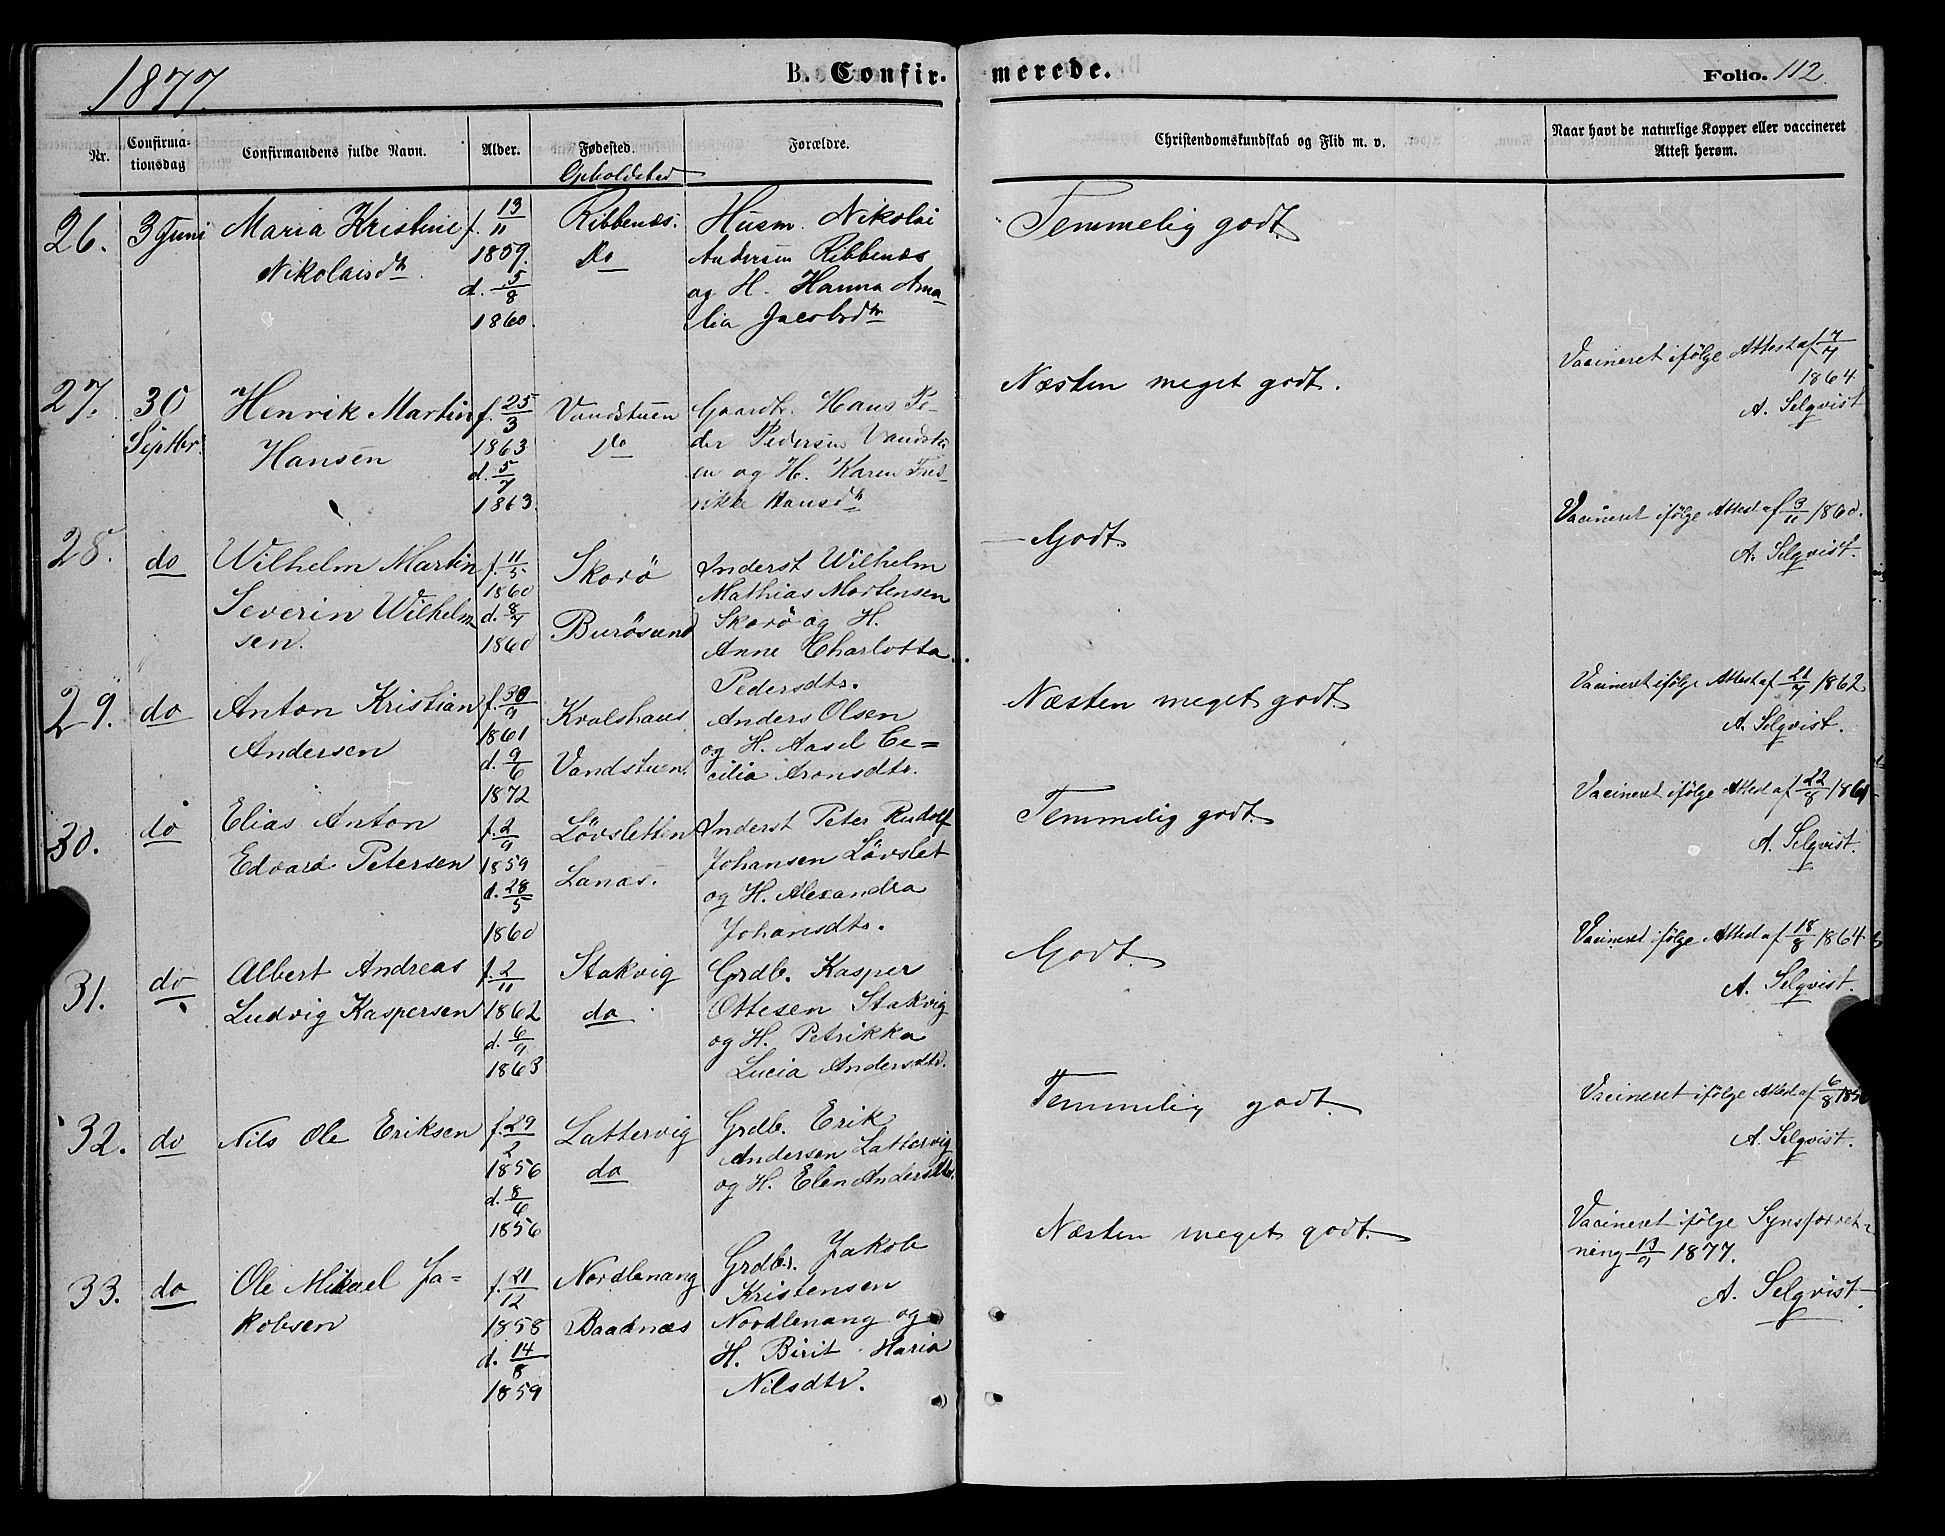 1877.
B. Confir-
merede.
Folio. 112.
Nr.
Confirma-
tionsdag
Confirmandens fulde Navn.
Alder.
Fødested.
Opholdsted
Forældre.
Christendomskundskab og Flid m. v.
Naar havt de naturlige Kopper eller vaccineret
Attest herom.
26.
3 Juni
Maria Kristine
Nikolaisdtr
f. 13/11
1859.
d. 5/8
1860.
Ribbenæs.
Do
Husm. Nikolai
Andersen Ribbenæs
og H. Hanna Ama-
lia Jacobsdtr
Temmelig godt.
27.
30
Septbr.
Henrik Martin
Hansen
f. 25/3
1863
d. 5/7
1863.
Vandstuen
Do
Gaardbr. Hans Pe-
der Pedersen Vandstu-
en og H. Karen Fred-
rikke Hansdtr
Næsten meget godt.
Vaccineret ifølge Attest af 7/7
1864
A. Selqvist
28.
do
Wilhelm Martin
Severin Wilhelm
sen.
f. 11/5
1860
d. 8/7
1860
Skorö
Burösund
Inderst Wilhelm
Mathias Mortensen
Skorö og H.
Anne Charlotta
Pedersdtr.
Godt.
Vaccineret ifølge Attest af 3/11 1860.
A. Selqvist.
29.
do
Anton Kristian
Andersen
f. 30/9
1861
d. 9/6
1872
Kvalshaus
Vandstuen.
Anders Olsen
og H. Aasel Ce=
cilia Aronsdtr.
Næsten meget godt.
Vaccineret ifølge Attest af 21/7 1862
A. Selqvist.
30.
do
Elias Anton
Edvard Petersen
f. 2/9
1859
d. 28/5
1860
Lövsletten
Lanæs.
Inderst Peter Rudolf
Johansen Lövslet
og H. Alexandra
Johansdtr.
Temmelig godt.
Vaccineret ifølge Attest af 22/8 1861
A. Selqvist.
31.
do
Albert Andreas
Ludvig Kaspersen
f. 2/11
1862
d. 6/9
1863
Stakvig
do
Grdb. Kasper
Ottesen Stakvig
og H. Petrikka
Lucia Andersdtr.
Godt.
Vaccineret ifølge Attest af 18/8 1864
A. Selqvist.
32.
do
Nils Ole Eriksen
f. 29/2
1856
d. 8/6
1856
Lattervig
do
Grdb. Erik
Andersen Lattervig
og H. Elen Andersdtr.
Temmelig godt.
Vaccineret ifølge Attest af 6/8
A. Selqvist.
33.
do
Ole Mikael Ja=
kobsen
f. 21/12
1858
d. 14/8
1859
Nordlenang
Baadnæs
Grdbr. Jakob
Kristensen
Nordlenang og
H. Birit Maria
Nilsdtr.
Næsten meget godt.
Vaccineret ifølge Synsforret-
ning 13/9 1877.
A. Selqvist.